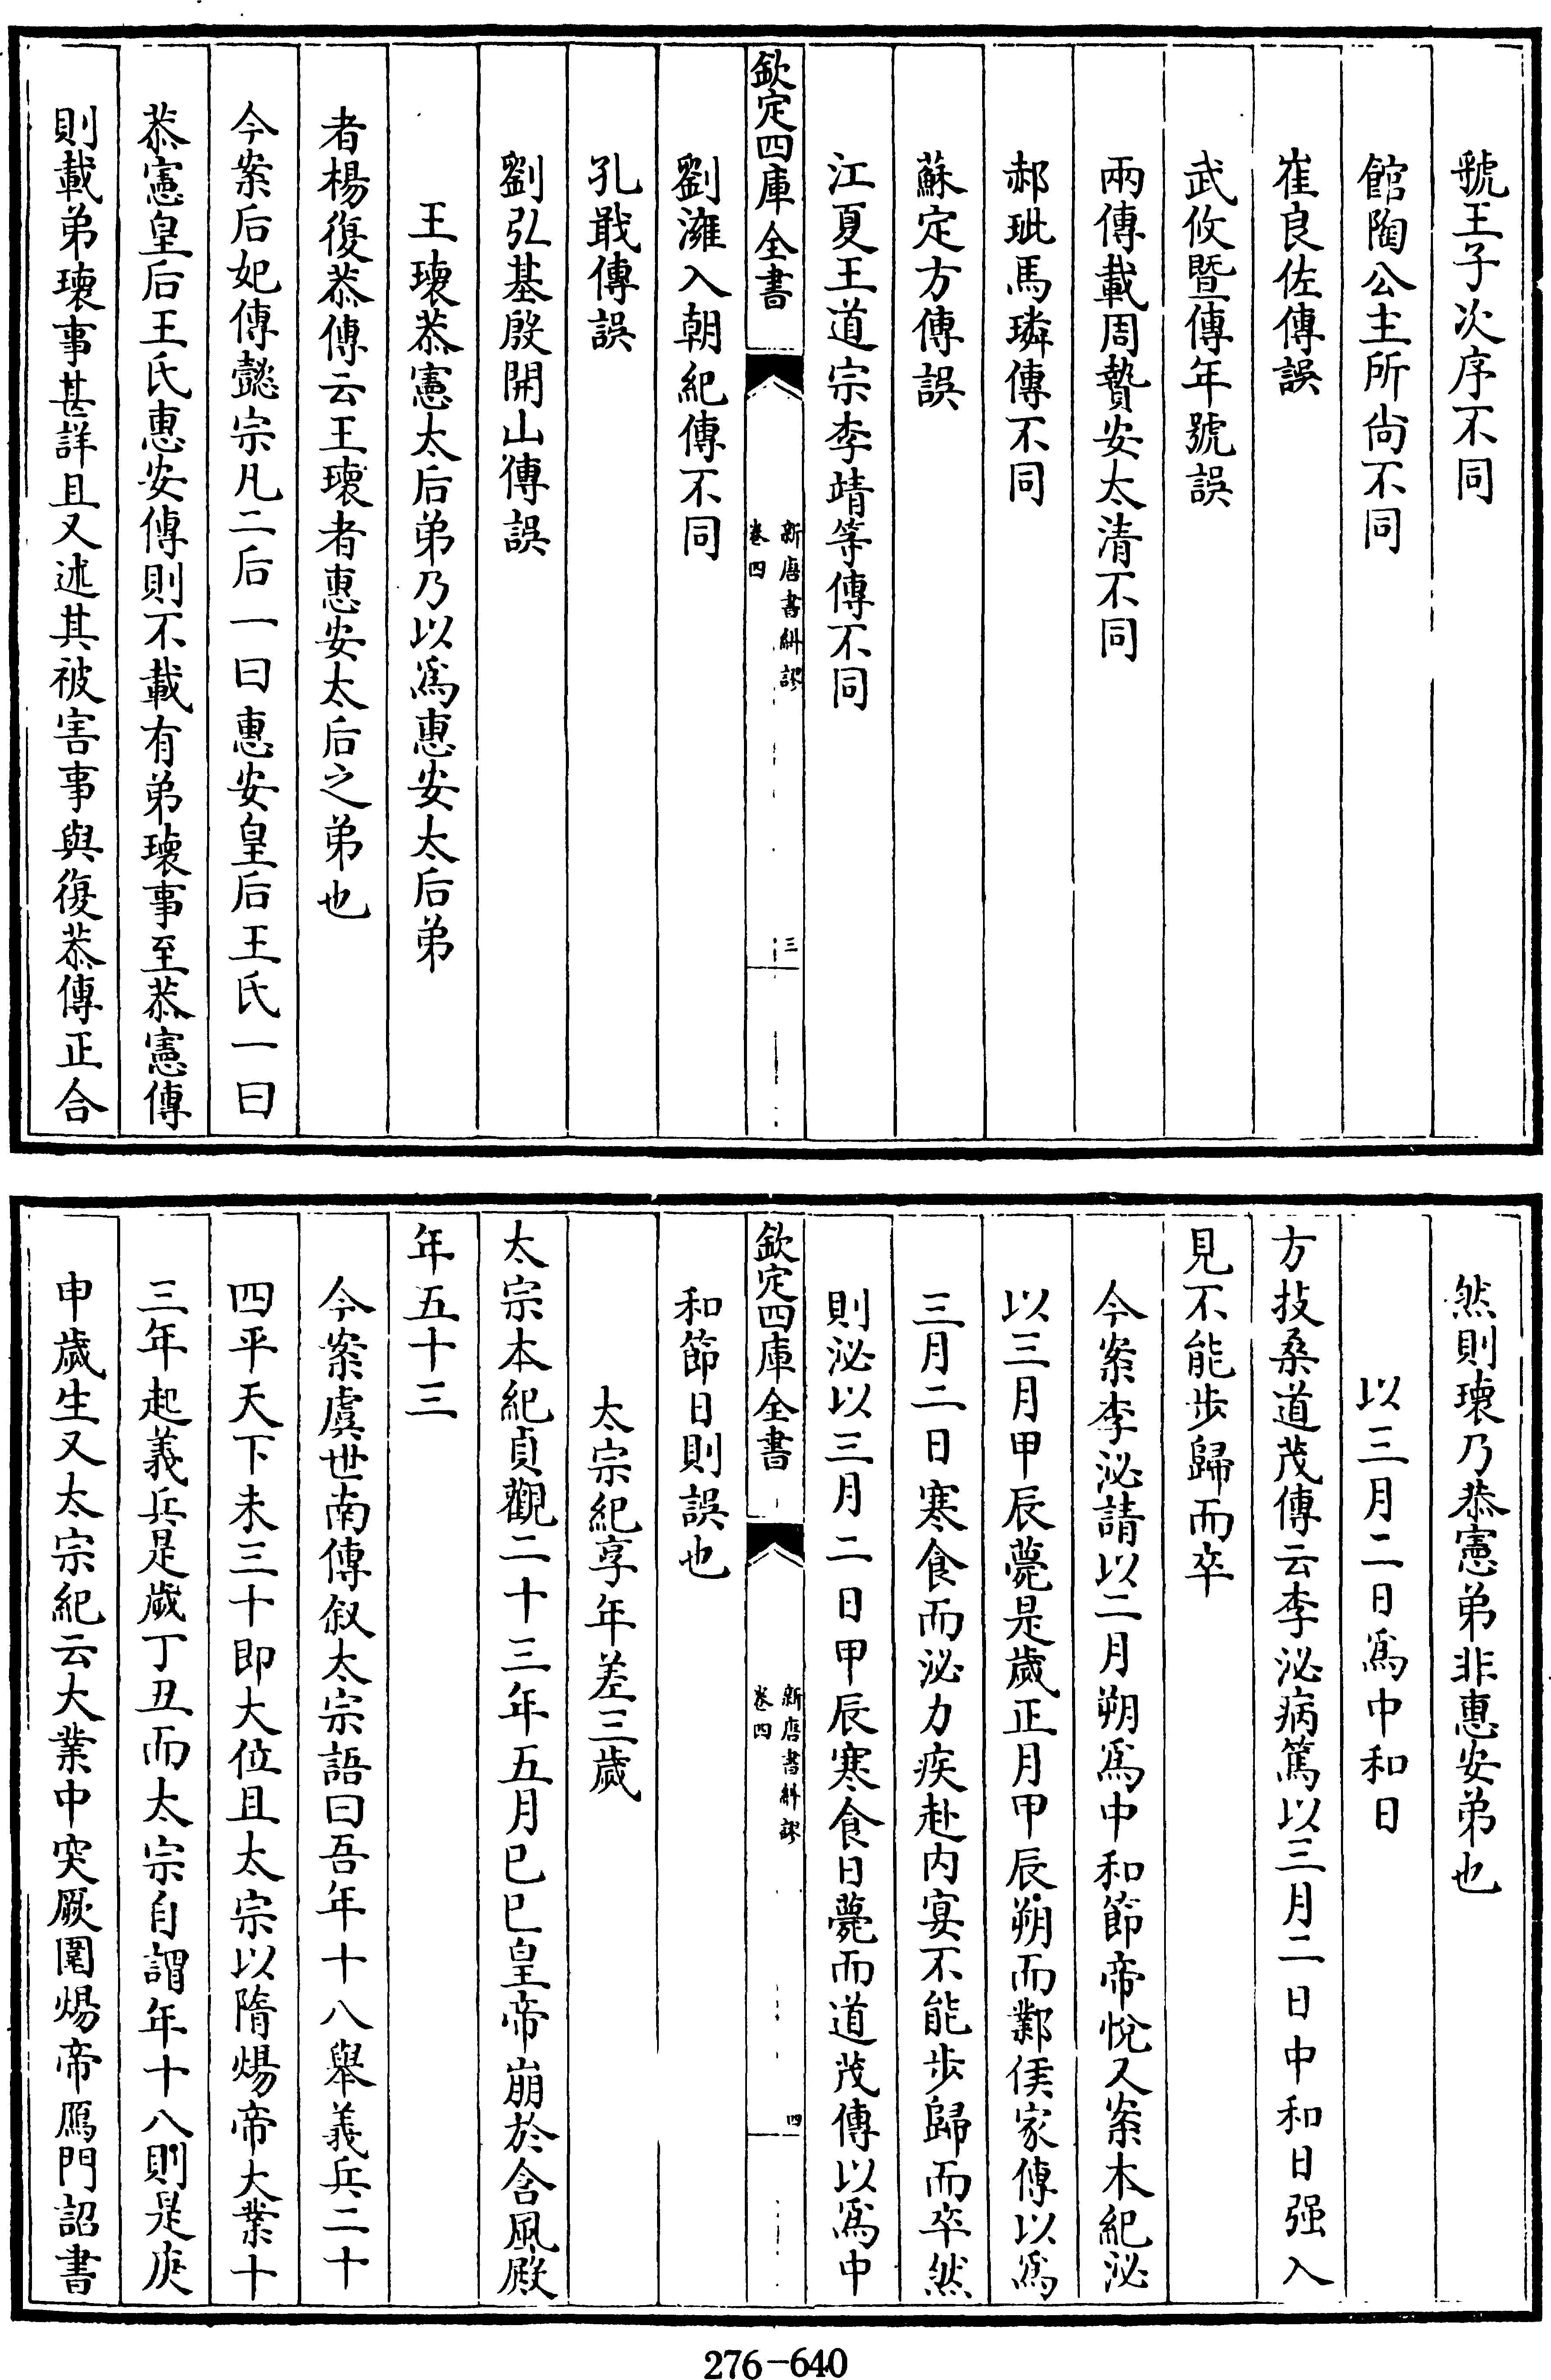 虢王子次序不同
館陶公主所尚不同
崔良佐傳誤
武攸暨傳年號誤
兩傳載周贄安太清不同
郝玼馬璘傳不同
蘇定方傳誤
江夏王道宗李靖等傳不同
欽定四庫全書
新唐書糾謬
卷四
三
劉澭入朝紀傳不同
孔戢傳誤
劉弘基殷開山傳誤
王瓌恭憲太后弟乃以為惠安太后弟
者楊復恭傳云王瓌者惠安太后之弟也
今案后妃傳懿宗凡二后一曰惠安皇后王氏一曰
恭憲皇后王氏惠安傳則不載有弟瓌事至恭憲傳
則載弟瓌事甚詳且又述其被害事與復恭傳正合
然則瓌乃恭憲弟非惠安弟也
以三月二日為中和日
方技桑道茂傳云李泌病篤以三月二日中和日强入
見不能步歸而卒
今案李泌請以二月朔為中和節帝悅又案本紀泌
以三月甲辰薨是歲正月甲辰朔而鄴侯家傳以為
三月二日寒食而泌力疾赴内宴不能步歸而卒然
則泌以三月二日甲辰寒食日薨而道茂傳以為中
欽定四庫全書
新唐書糾謬
卷四
四
和節日則誤也
太宗紀享年差三歲
太宗本紀貞觀二十三年五月已巳皇帝崩於含風殿
年五十三
今案虞世南傳叙太宗語曰吾年十八舉義兵二十
四平天下未三十即大位且太宗以隋煬帝大業十
三年起義兵是歲丁丑而太宗自謂年十八則是庚
申歲生又太宗紀云大業中突厥圍煬帝鴈門詔書
276-640